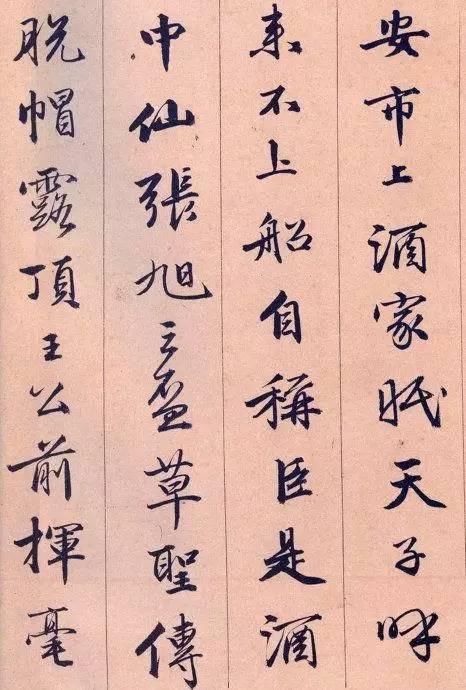 安市上酒家眠天子呼
来不上船自稱臣是酒
中仙張旭三盃草聖傳
脱帽露頂王公前揮毫